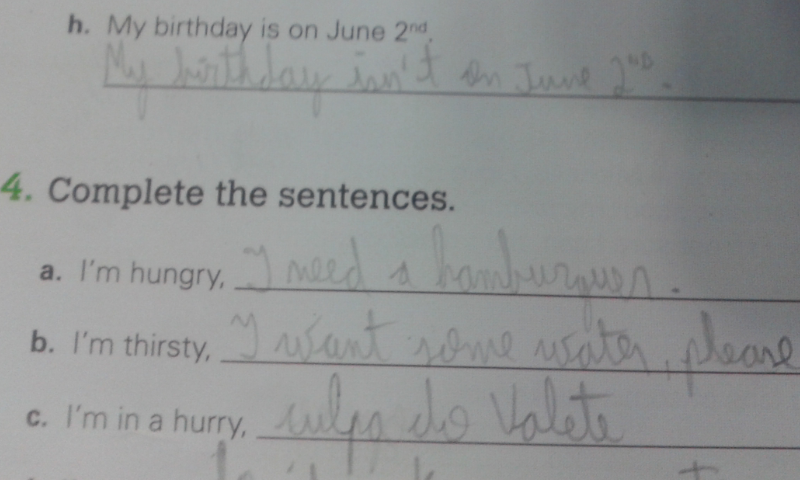 h. My birthday is on June 2nd.
My birthday isn't on June 2ND.
4. Complete the sentences.
a. I'm hungry, I need a hamburguer.
b. I'm thirsty, I want some water, please
c. I'm in a hurry, culpa do Valete